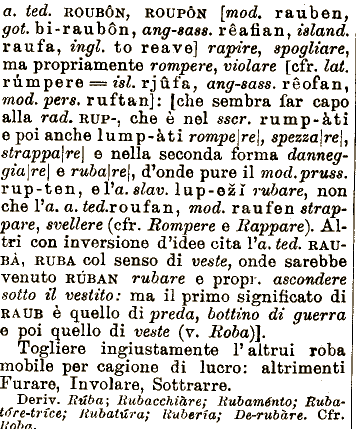 a. ted. ROUBÔN, ROUPÔN [mod. rauben,
got. bi-raubôn, ang-sass. rêafian, island.
raufa, ingl. to reave] rapire, spogliare,
ma propriamente rompere, violare [cfr. lat.
rúmpere = isl. rjûfa, ang-sass. rêofan,
mod. pers. ruftan]: [che sembra far capo
alla rad. RUP-, che è nel sscr. rump-àti
e poi anche lump-àti rompe|re|, spezza|re|,
strappa|re| e nella seconda forma danneg-
gia|re| e ruba|re|, d'onde pure il mod.pruss.
rup-ten, e l'a. slav. lup-ežĭ rubare, non
che l'a. a. ted. roufan, mod. raufen strap-
pare, svellere (cfr. Rompere e Rappare). Al-
tri con inversione d'idee cita l'a. ted. RAU-
BÀ, RUBA col senso di veste, onde sarebbe
venuto RÚBAN rubare e propr. ascondere
sotto il vestito: ma il primo significato di
RAUB è quello di preda, bottino di guerra
e poi quello di veste (v. Roba)].
Togliere ingiustamente l'altrui roba
mobile per cagione di lucro: altrimenti
Furare, Involare, Sottrarre.
Deriv. Rúba; Rubacchiàre; Rubaménto; Ruba-
tóre-trice; Rubatúra; Ruberìa; De-rubàre. Cfr.
Roba.